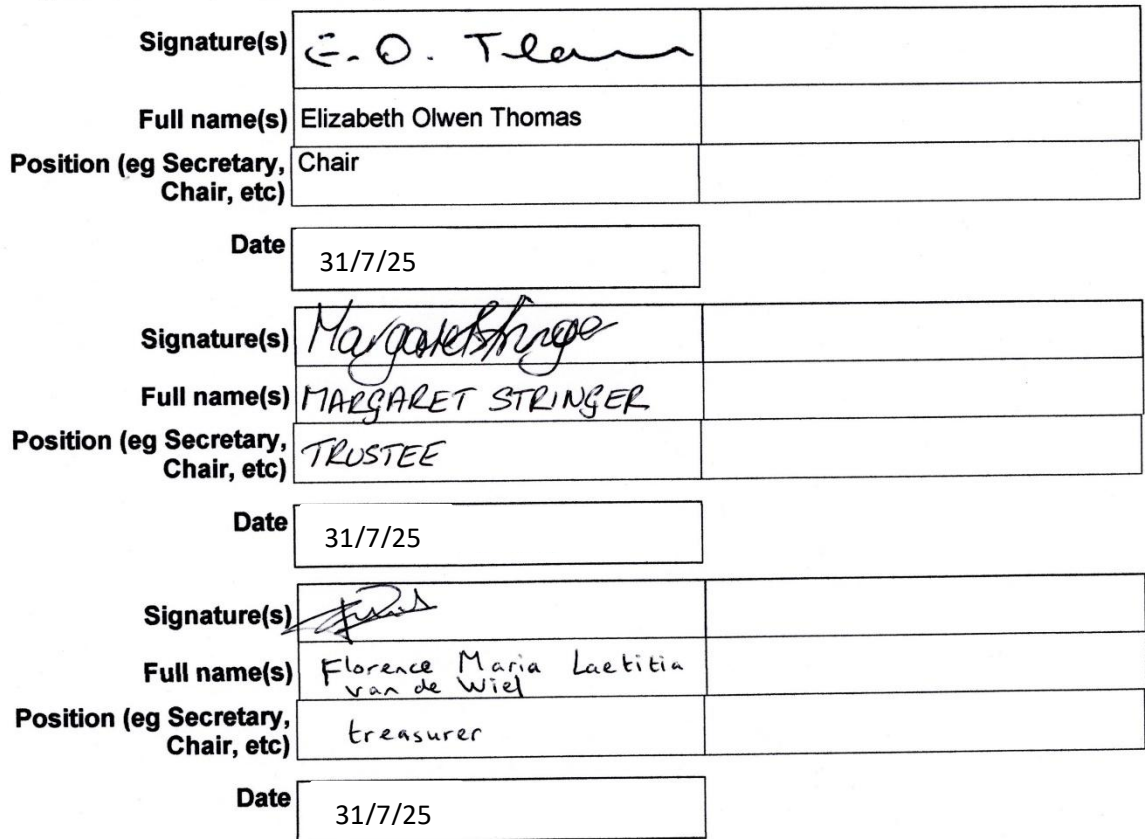 Signature(s) E. O. Thomas
Full name(s) Elizabeth Olwen Thomas
Position (eg Secretary, Chair
Chair, etc)
Date 31/7/25
Signature(s) Margaret Stringer
Full name(s) MARGARET STRINGER
Position (eg Secretary, TRUSTEE
Chair, etc)
Date 31/7/25
Signature(s)
Full name(s) Florence Maria Laetitia
van de Wiel
Position (eg Secretary, treasurer
Chair, etc)
Date 31/7/25